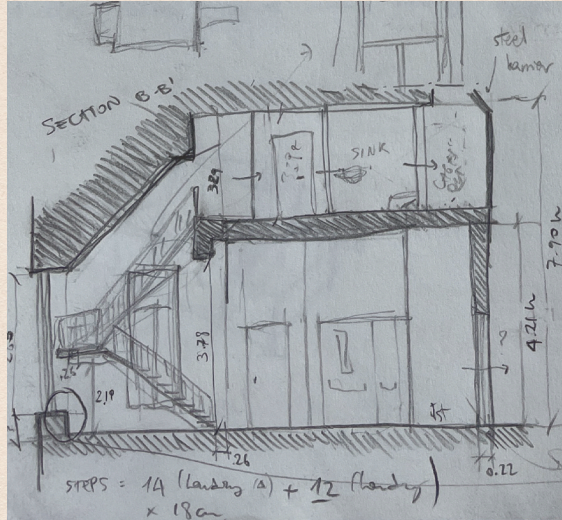 steel
barrier
SECTION B-B'
SINK
3.78
4.21 h
7.90 h
.25
2.19
.26
0.22
?
STEPS = 14 (Landing Δ) + 12 (Landing)
× 18 cm